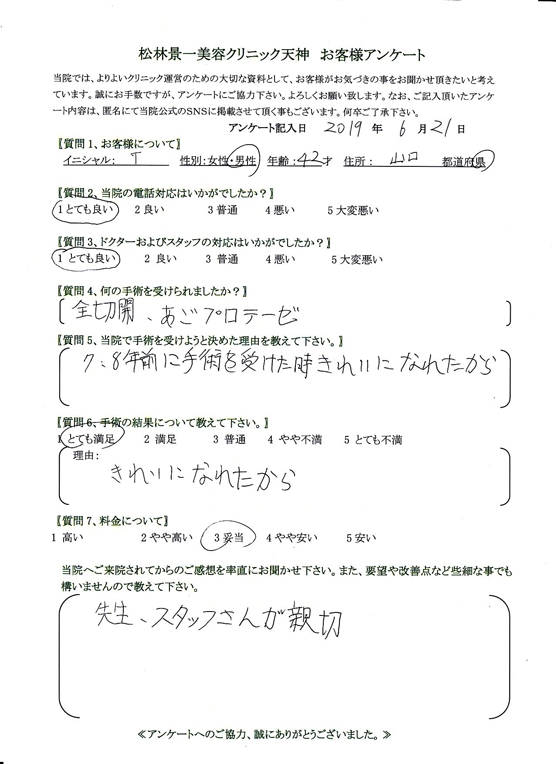 松林景一美容クリニック天神 お客様アンケート
当院では、よりよいクリニック運営のための大切な資料として、お客様がお気づきの事をお聞かせ頂きたいと考え
ています。誠にお手数ですが、アンケートにご協力下さい。よろしくお願い致します。なお、ご記入頂いたアンケ
ート内容は、匿名にて当院公式のSNSに掲載させて頂く事もございます。何卒ご了承下さい。
アンケート記入日 2019 年 6 月 21 日
【質問1、お客様について】
イニシャル: T 性別:女性・男性 年齢:42才 住所: 山口 都道府県
【質問2、当院の電話対応はいかがでしたか?】
1 とても良い 2 良い 3 普通 4 悪い 5 大変悪い
【質問3、ドクターおよびスタッフの対応はいかがでしたか?】
1 とても良い 2 良い 3 普通 4 悪い 5 大変悪い
【質問4、何の手術を受けられましたか?】
全切開、あごプロテーゼ
【質問5、当院で手術を受けようと決めた理由を教えて下さい。】
7、8年前に手術を受けた時きれいになれたから
【質問6、手術の結果について教えて下さい。】
1 とても満足 2 満足 3 普通 4 やや不満 5 とても不満
理由:
きれいになれたから
【質問7、料金について】
1 高い 2 やや高い 3 妥当 4 やや安い 5 安い
当院へご来院されてからのご感想を率直にお聞かせ下さい。また、要望や改善点など些細な事でも
構いませんので教えて下さい。
先生、スタッフさんが親切
≪アンケートへのご協力、誠にありがとうございました。≫